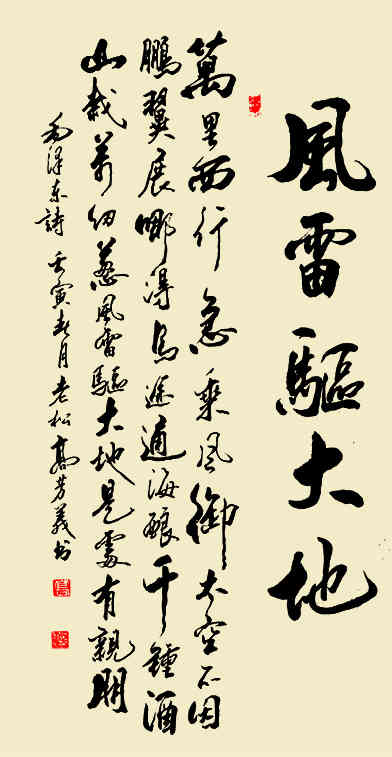 風雷驅大地
萬里西行急乘风御太空不因
鵬翼展哪得鳥途通海釀千鍾酒
山栽萬仞葱風雷驅大地是處有親朋
毛澤東詩 壬寅春月老松高芳義书